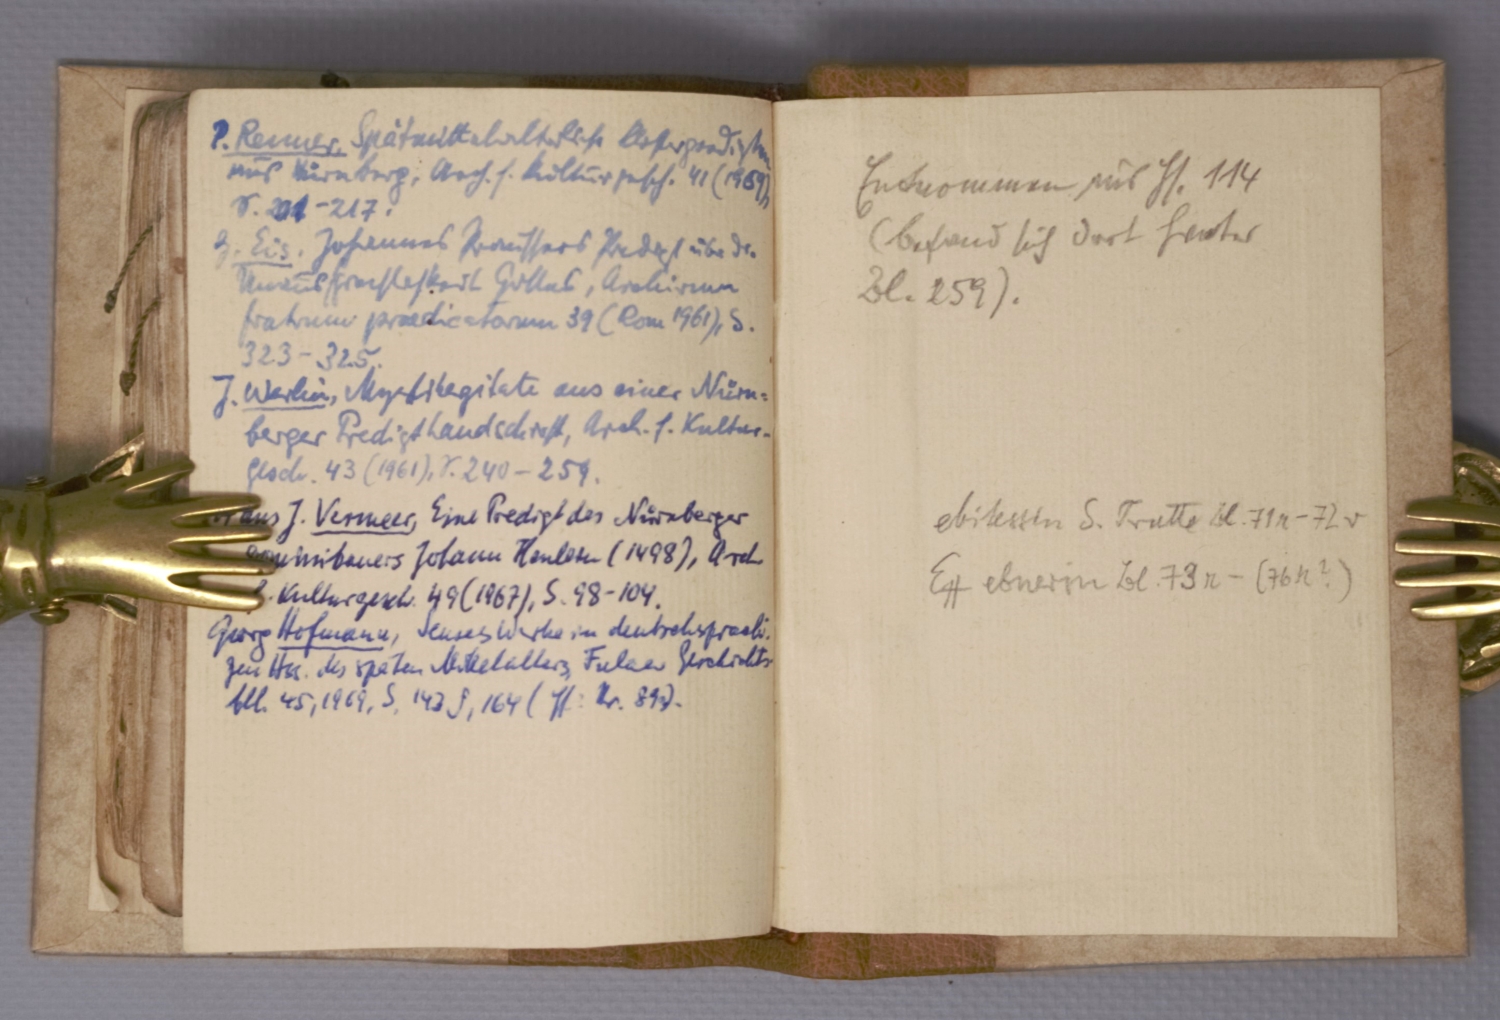 P. Renner, Spätmittelalterliche Klosterpredigten
aus Nürnberg, Arch. f. Kulturgesch. 41 (1959),
S. 201-217.
G. Eis, Johannes Predigt über die
Unaussprechlichkeit Gottes, Archivum
fratrum praedicatorum 39 (Rom 1961), S.
323-325.
J. Werlin, Mystikerzitate aus einer Nürn=
berger Predigthandschrift, Arch. f. Kultur-
gesch. 43 (1961), S. 240-259.
J. Vermeer, Eine Predigt des Nürnberger
Johann (1498), Arch
f. Kulturgesch. 49 (1967), S. 98-104.
Georg Hofmann, Seuses Werke in deutschsprachi.
gen Hss. des späten Mittelalters, Fuldaer Geschichts-
bll. 45, 1969, S. 143 f, 164 (Nr. 89).
Entnommen aus Hs. 114
(befand sich dort hinter
Bl. 259).
ebitessin S. Trutte Bl. 71r-72v
ebnerin Bl. 73r - (76r?)